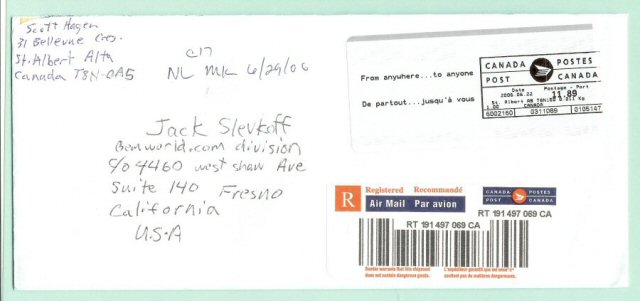 Scott Hagen
31 Bellevue Cres.
St. Albert Alta
Canada T8N-0A5
C17
NL MK 6/29/06
From anywhere...to anyone
De partout...jusqu'à vous
CANADA POSTES
POST CANADA
Date
2006.06.22
Postage - Port
11.89
St. Albert AB T8N1S0 0.011 Kg
1.00 CANADA
6002160 0311069 0105147
Jack Slevkoff
Bemworld.com division
c/o 4460 west shaw Ave
Suite 140 Fresno
California
U.S.A
R Registered Recommandé
Air Mail Par avion
CANADA POSTES
POST CANADA
RT 191 497 069 CA
RT 191 497 069 CA
Sender warrants that this shipment
does not contain dangerous goods.
L'expéditeur garantit que cet envoi ne
contient pas de matières dangereuses.